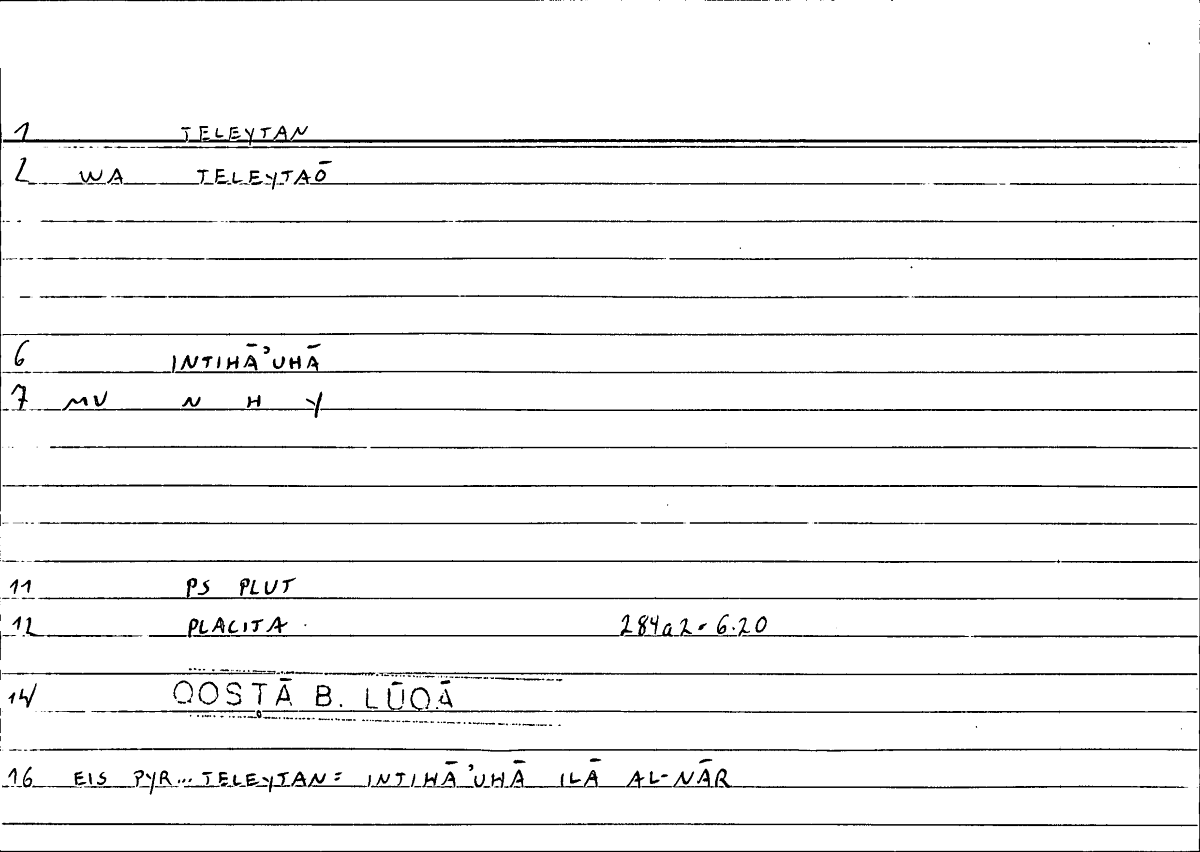 1 TELEYTAN
2 WA TELEYTAŌ
6 INTIHĀʾUHĀ
7 MV N H Y
11 PS PLUT
12 PLACITA 284a2-6.20
14/ QOSṬĀ B. LŪQĀ
16 EIS PYR... TELEYTAN = INTIHĀʾUHĀ ILĀ AL-NĀR